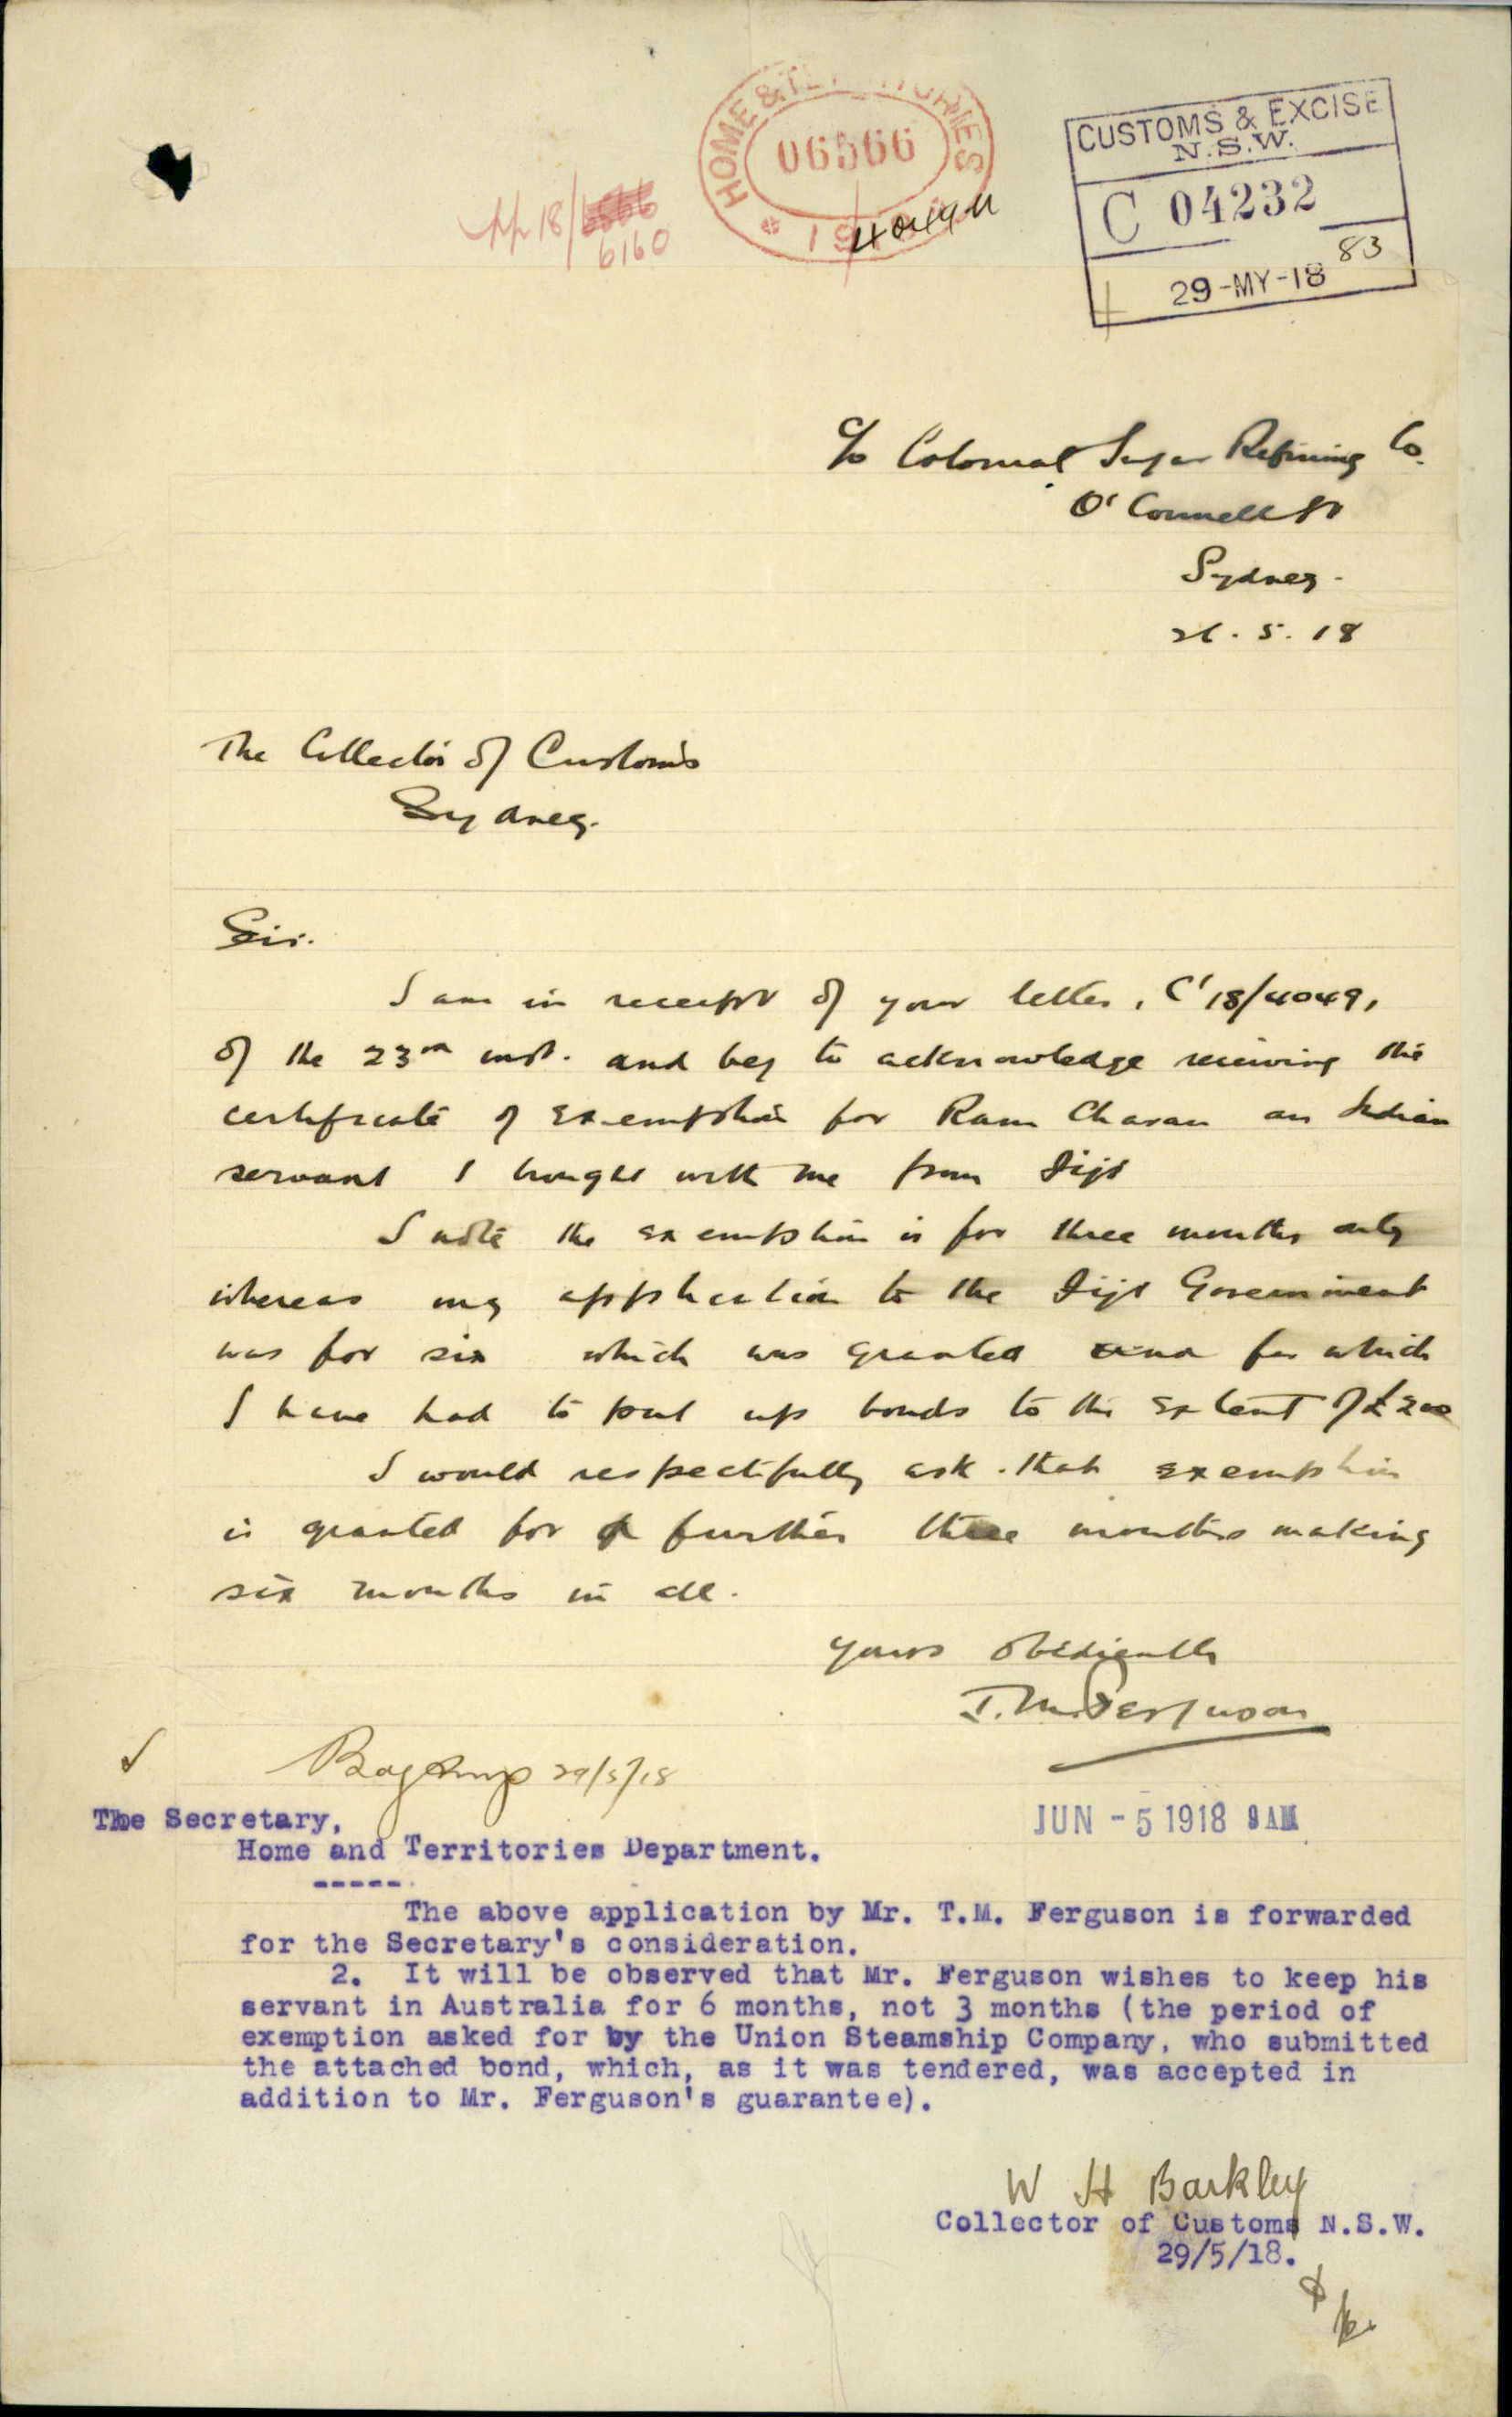 HOME & TERRITORIES
06566
18/
6160
CUSTOMS & EXCISE
N.S.W.
C 04232
83
29-MY-18
c/o Colonial Sugar Refining Co.
O'Connell St
Sydney.
26.5.18
The Collector of Customs
Sydney.
Sir.
I am in receipt of your letter, C'18/4049,
of the 23rd inst. and beg to acknowledge receiving the
certificate of exemption for Ram Charan an Indian
servant I brought with me from Fiji
I note the exemption is for three months only
whereas my application to the Fiji Government
was for six which was granted and for which
I have had to put up bonds to the extent of £200
I would respectfully ask that exemption
is granted for a further three months making
six months in all.
Yours obediently
T.M. Ferguson
29/5/18
The Secretary,
JUN -5 1918 9AM
Home and Territories Department.
-----
The above application by Mr. T.M. Ferguson is forwarded
for the Secretary's consideration.
2. It will be observed that Mr. Ferguson wishes to keep his
servant in Australia for 6 months, not 3 months (the period of
exemption asked for by the Union Steamship Company, who submitted
the attached bond, which, as it was tendered, was accepted in
addition to Mr. Ferguson's guarantee).
W H Barkley
Collector of Customs N.S.W.
29/5/18.